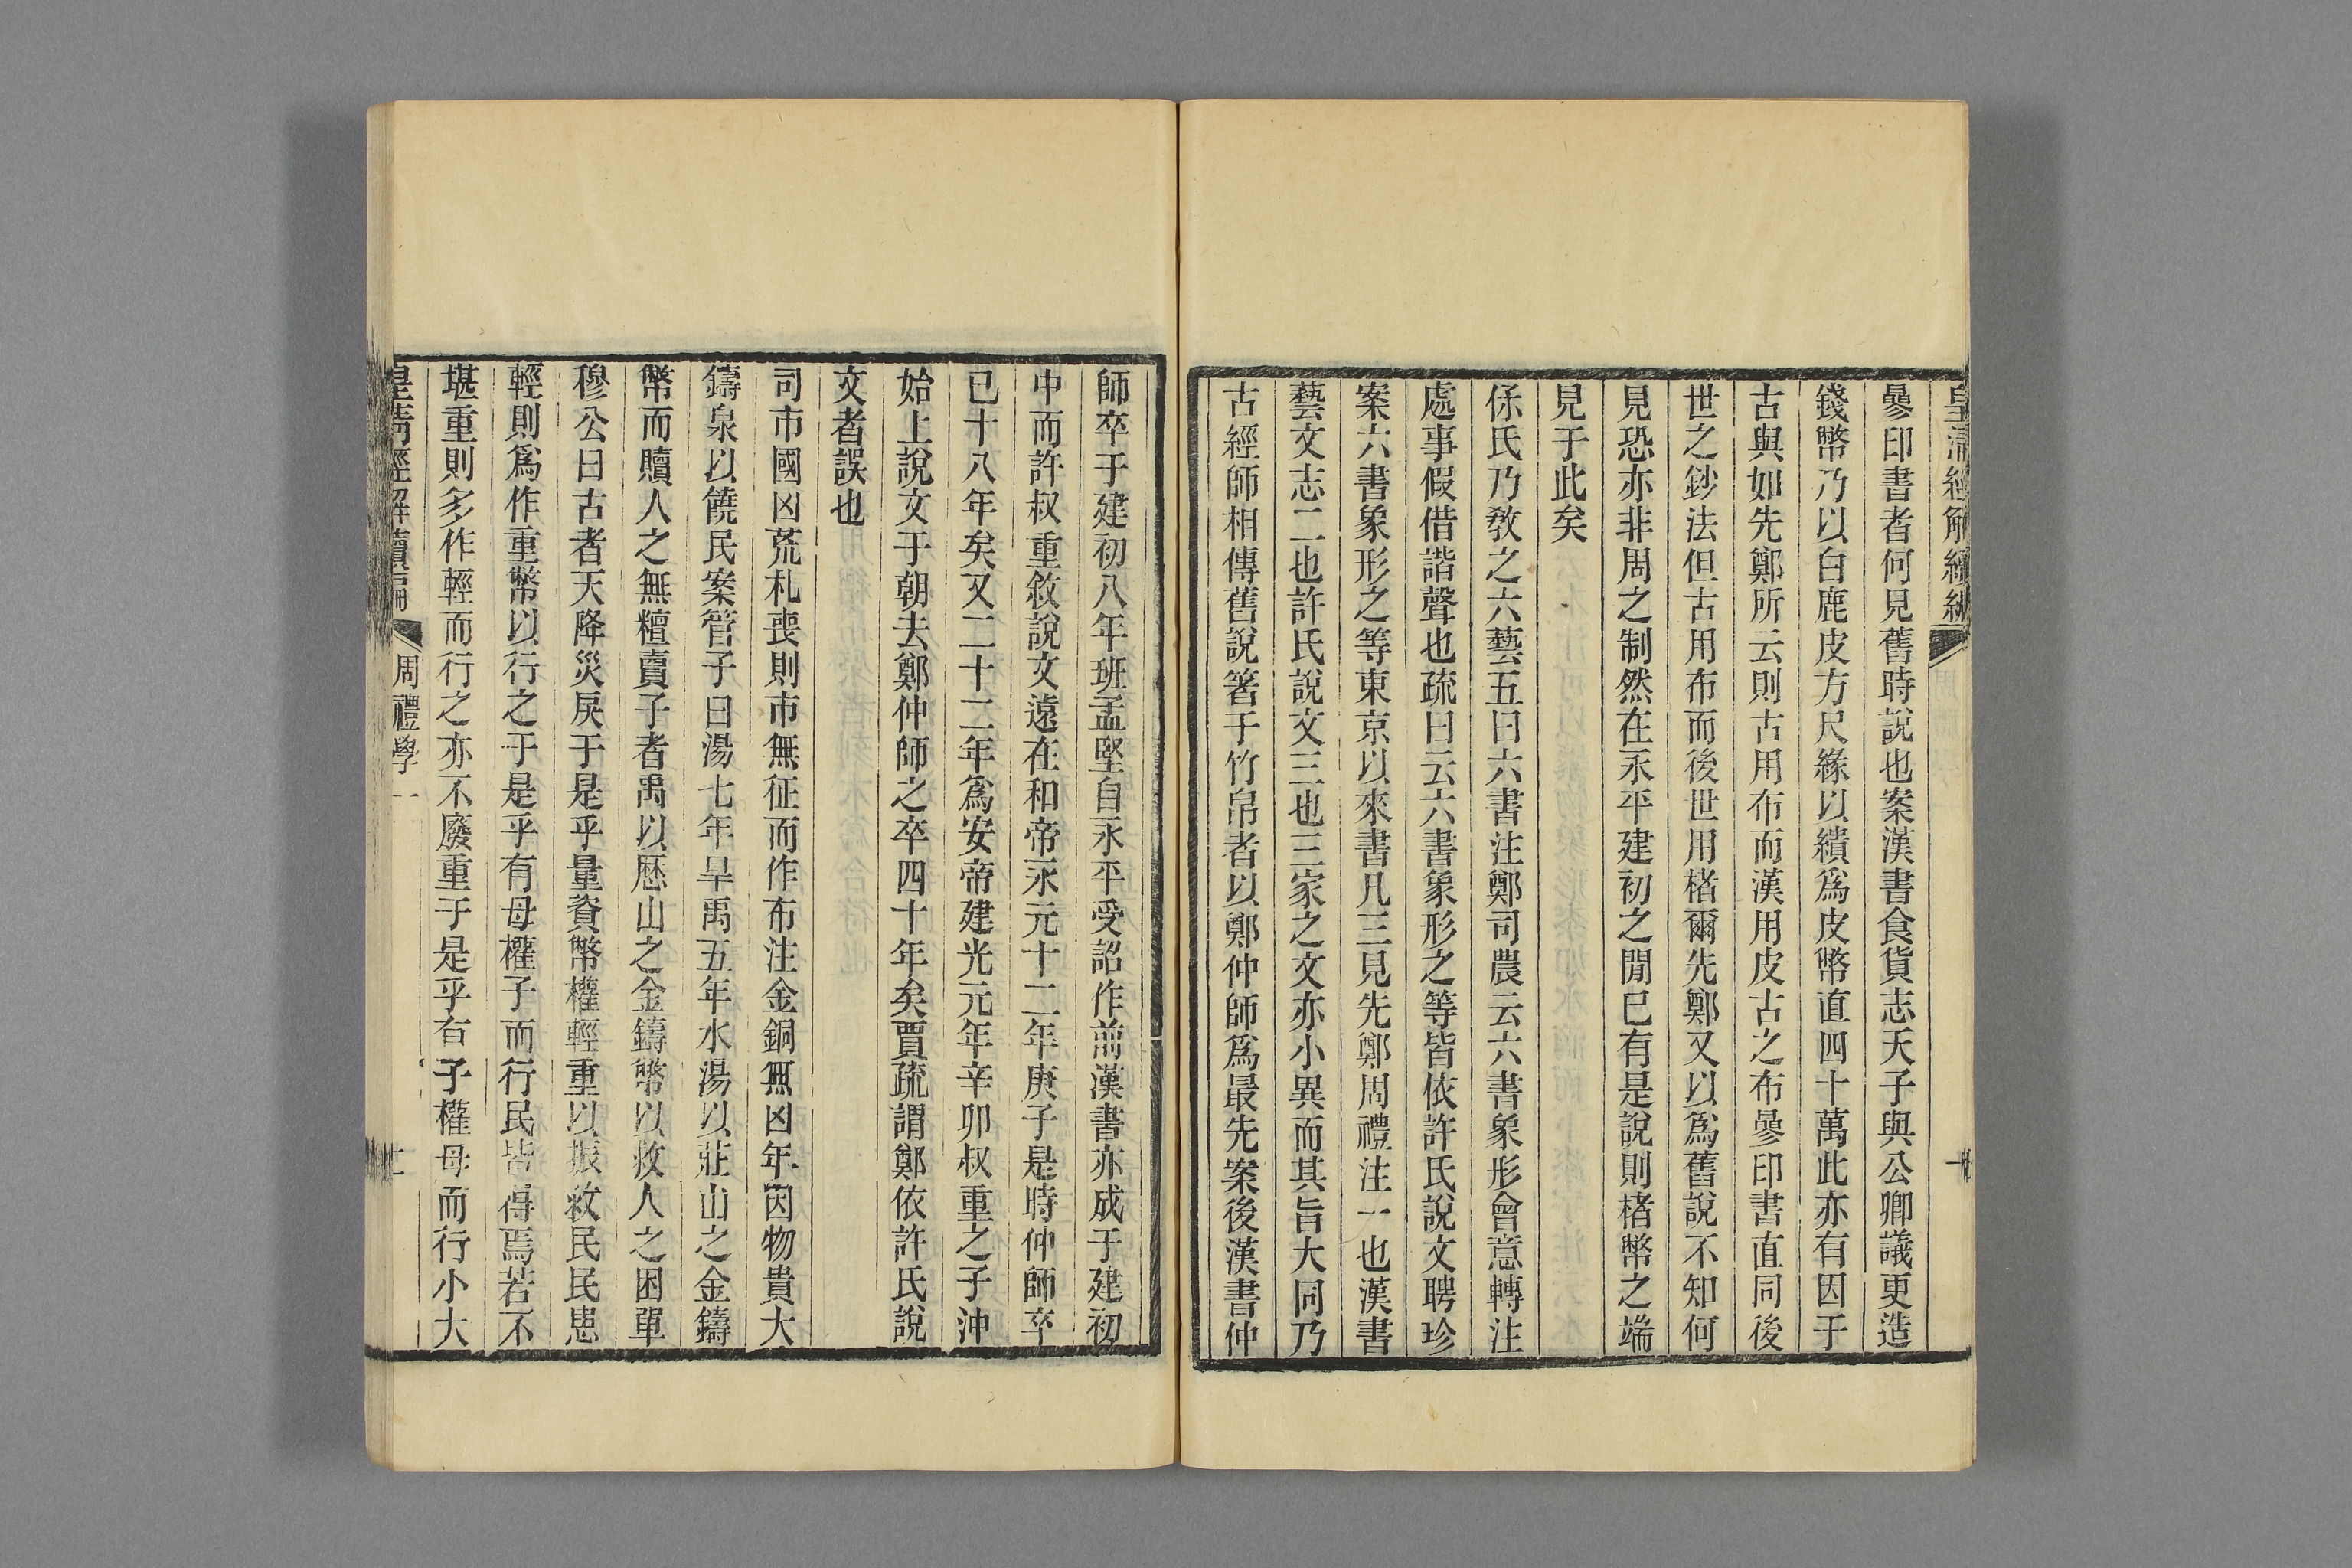 皇清經解續編
曑印書者何見舊時說也案漢書食貨志天子與公卿議更造
錢幣乃以白鹿皮方尺緣以繢爲皮幣直四十萬此亦有因于
古與如先鄭所云則古用布而漢用皮古之布曑印書直同後
世之鈔法但古用布而後世用楮爾先鄭又以爲舊說不知何
見恐亦非周之制然在永平建初之閒已有是說則楮幣之端
見于此矣
保氏乃敎之六藝五曰六書注鄭司農云六書象形會意轉注
處事假借諧聲也疏曰云六書象形之等皆依許氏說文聘珍
案六書象形之等東京以來書凡三見先鄭周禮注一也漢書
藝文志二也許氏說文三也三家之文亦小異而其旨大同乃
古經師相傳舊說箸于竹帛者以鄭仲師爲最先案後漢書仲
師卒于建初八年班孟堅自永平受詔作前漢書亦成于建初
中而許叔重敘說文遠在和帝永元十二年庚子是時仲師卒
已十八年矣又二十二年爲安帝建光元年辛卯叔重之子沖
始上說文于朝去鄭仲師之卒四十年矣賈疏謂鄭依許氏說
文者誤也
司市國凶荒札喪則市無征而作布注金銅無凶年因物貴大
鑄泉以饒民案管子曰湯七年旱禹五年水湯以莊山之金鑄
幣而贖人之無𥼷賣子者禹以歷山之金鑄幣以救人之困單
穆公曰古者天降災戾于是乎量資幣權輕重以振救民民患
輕則爲作重幣以行之于是乎有母權子而行民皆得焉若不
堪重則多作輕而行之亦不廢重于是乎有子權母而行小大
皇清經解續編
周禮學一